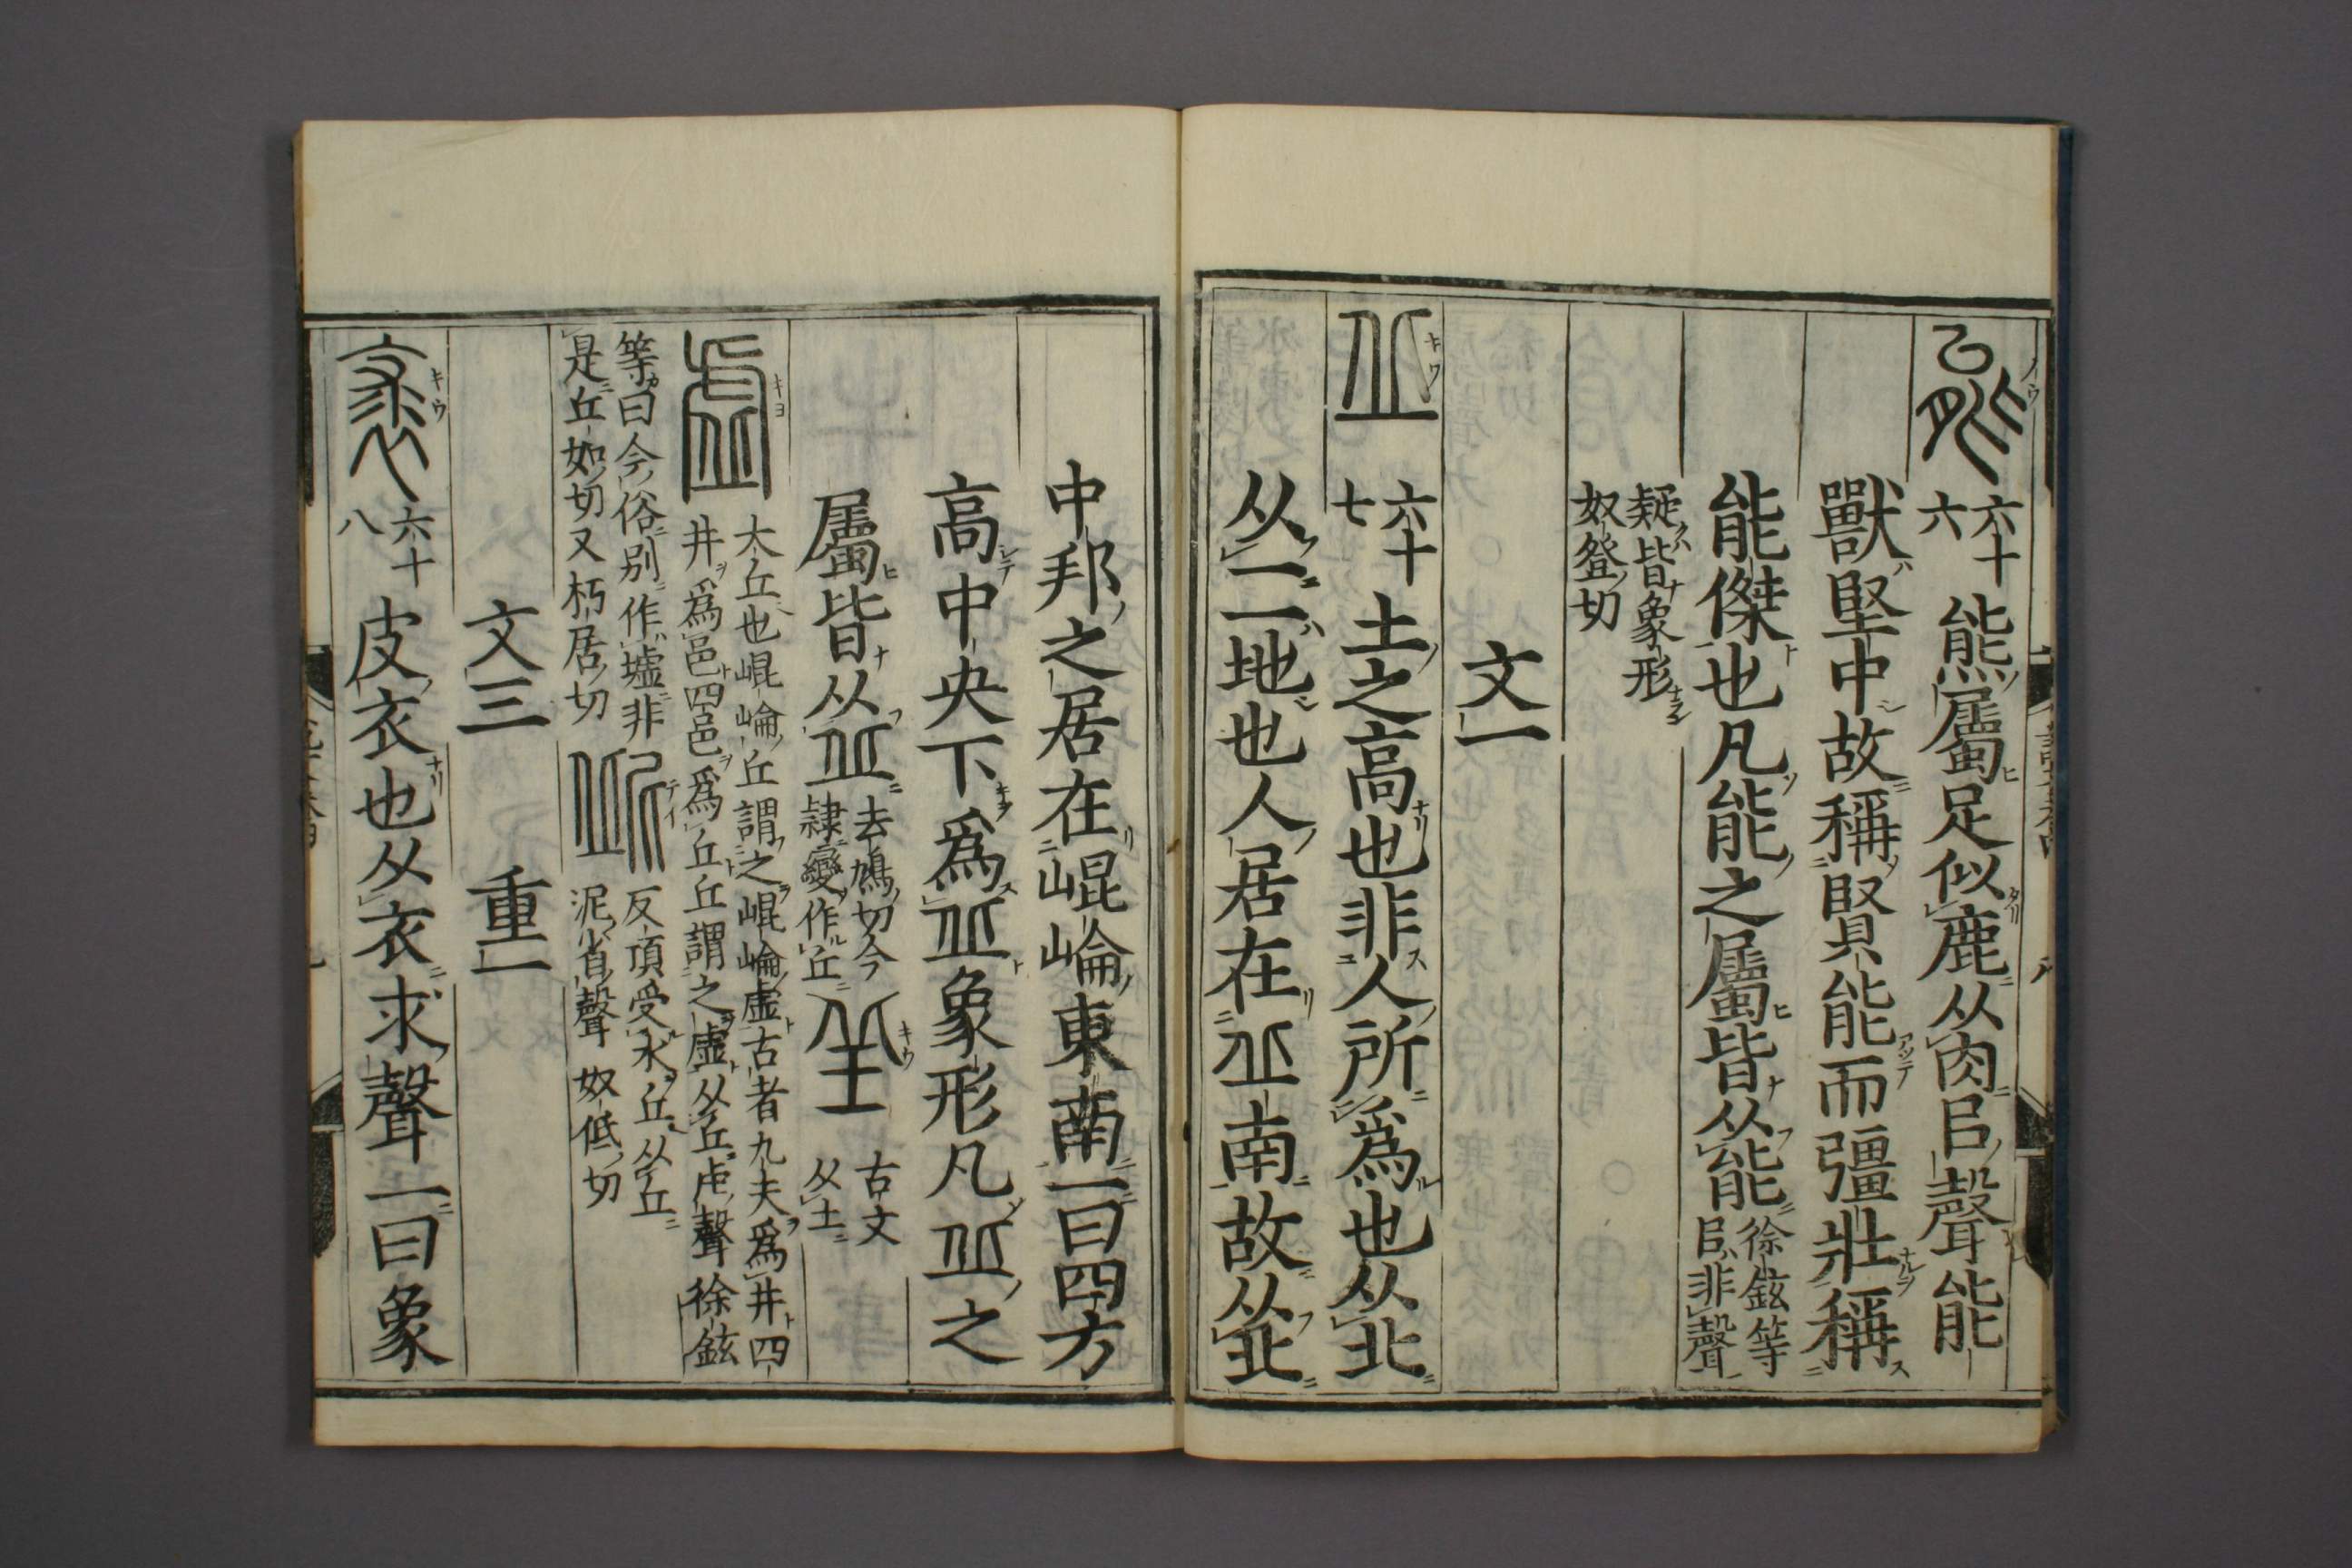 能 六十六 熊屬足似鹿从肉㠯聲能
獸堅中故稱賢能而彊壯稱
能傑也凡能之屬皆从能 徐鉉等㠯非聲
疑皆象形奴登切
文一
丠 六十七 土之高也非人所爲也从北
从一一地也人居在丠南故从北
中邦之居在崐崘東南一曰四方
高中央下爲丠象形凡丠之
屬皆从丠 去鳩切今隷變作丘 𡊣 古文从土
虛 大丘也崐崘丘謂之崐崘虛古者九夫爲井四井爲邑四邑爲丘丘謂之虛从丘虍聲 徐鉉
等曰今俗别作墟非是丘如切又朽居切 屔 反頂受水丘从丘泥省聲 奴低切
文三 重一
裘 六十八 皮衣也从衣求聲一曰象